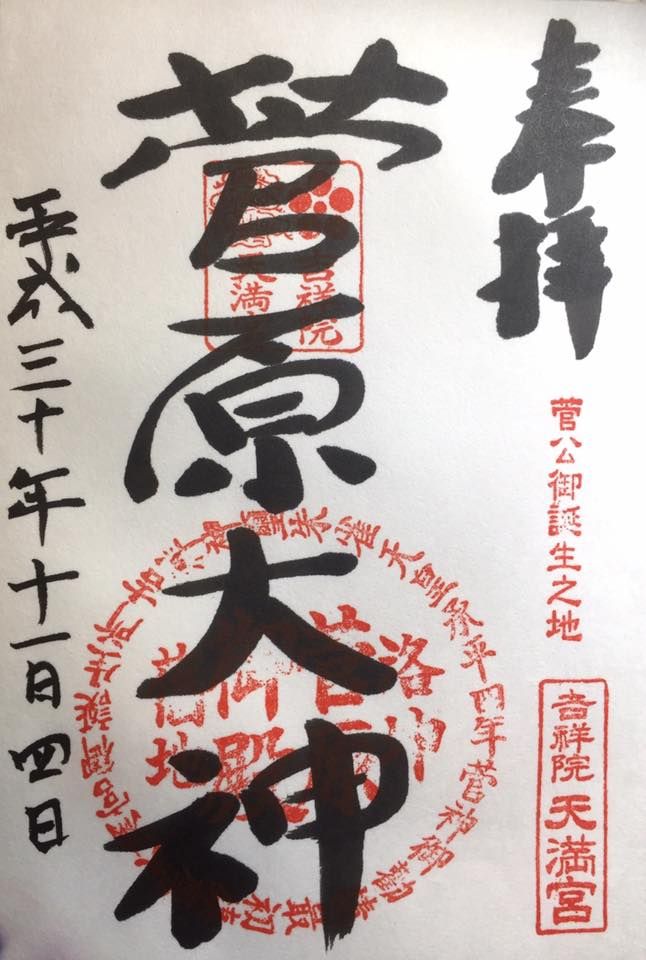 奉拝
菅公御誕生之地
吉祥院天満宮
菅原大神
吉祥院
天満
朱雀天皇承平四年菅神御勸請最初
平成三十年十一日四日